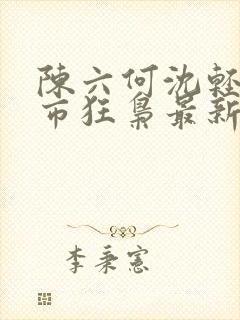 陳六何沈輕
市狂梟最新
李秉憲